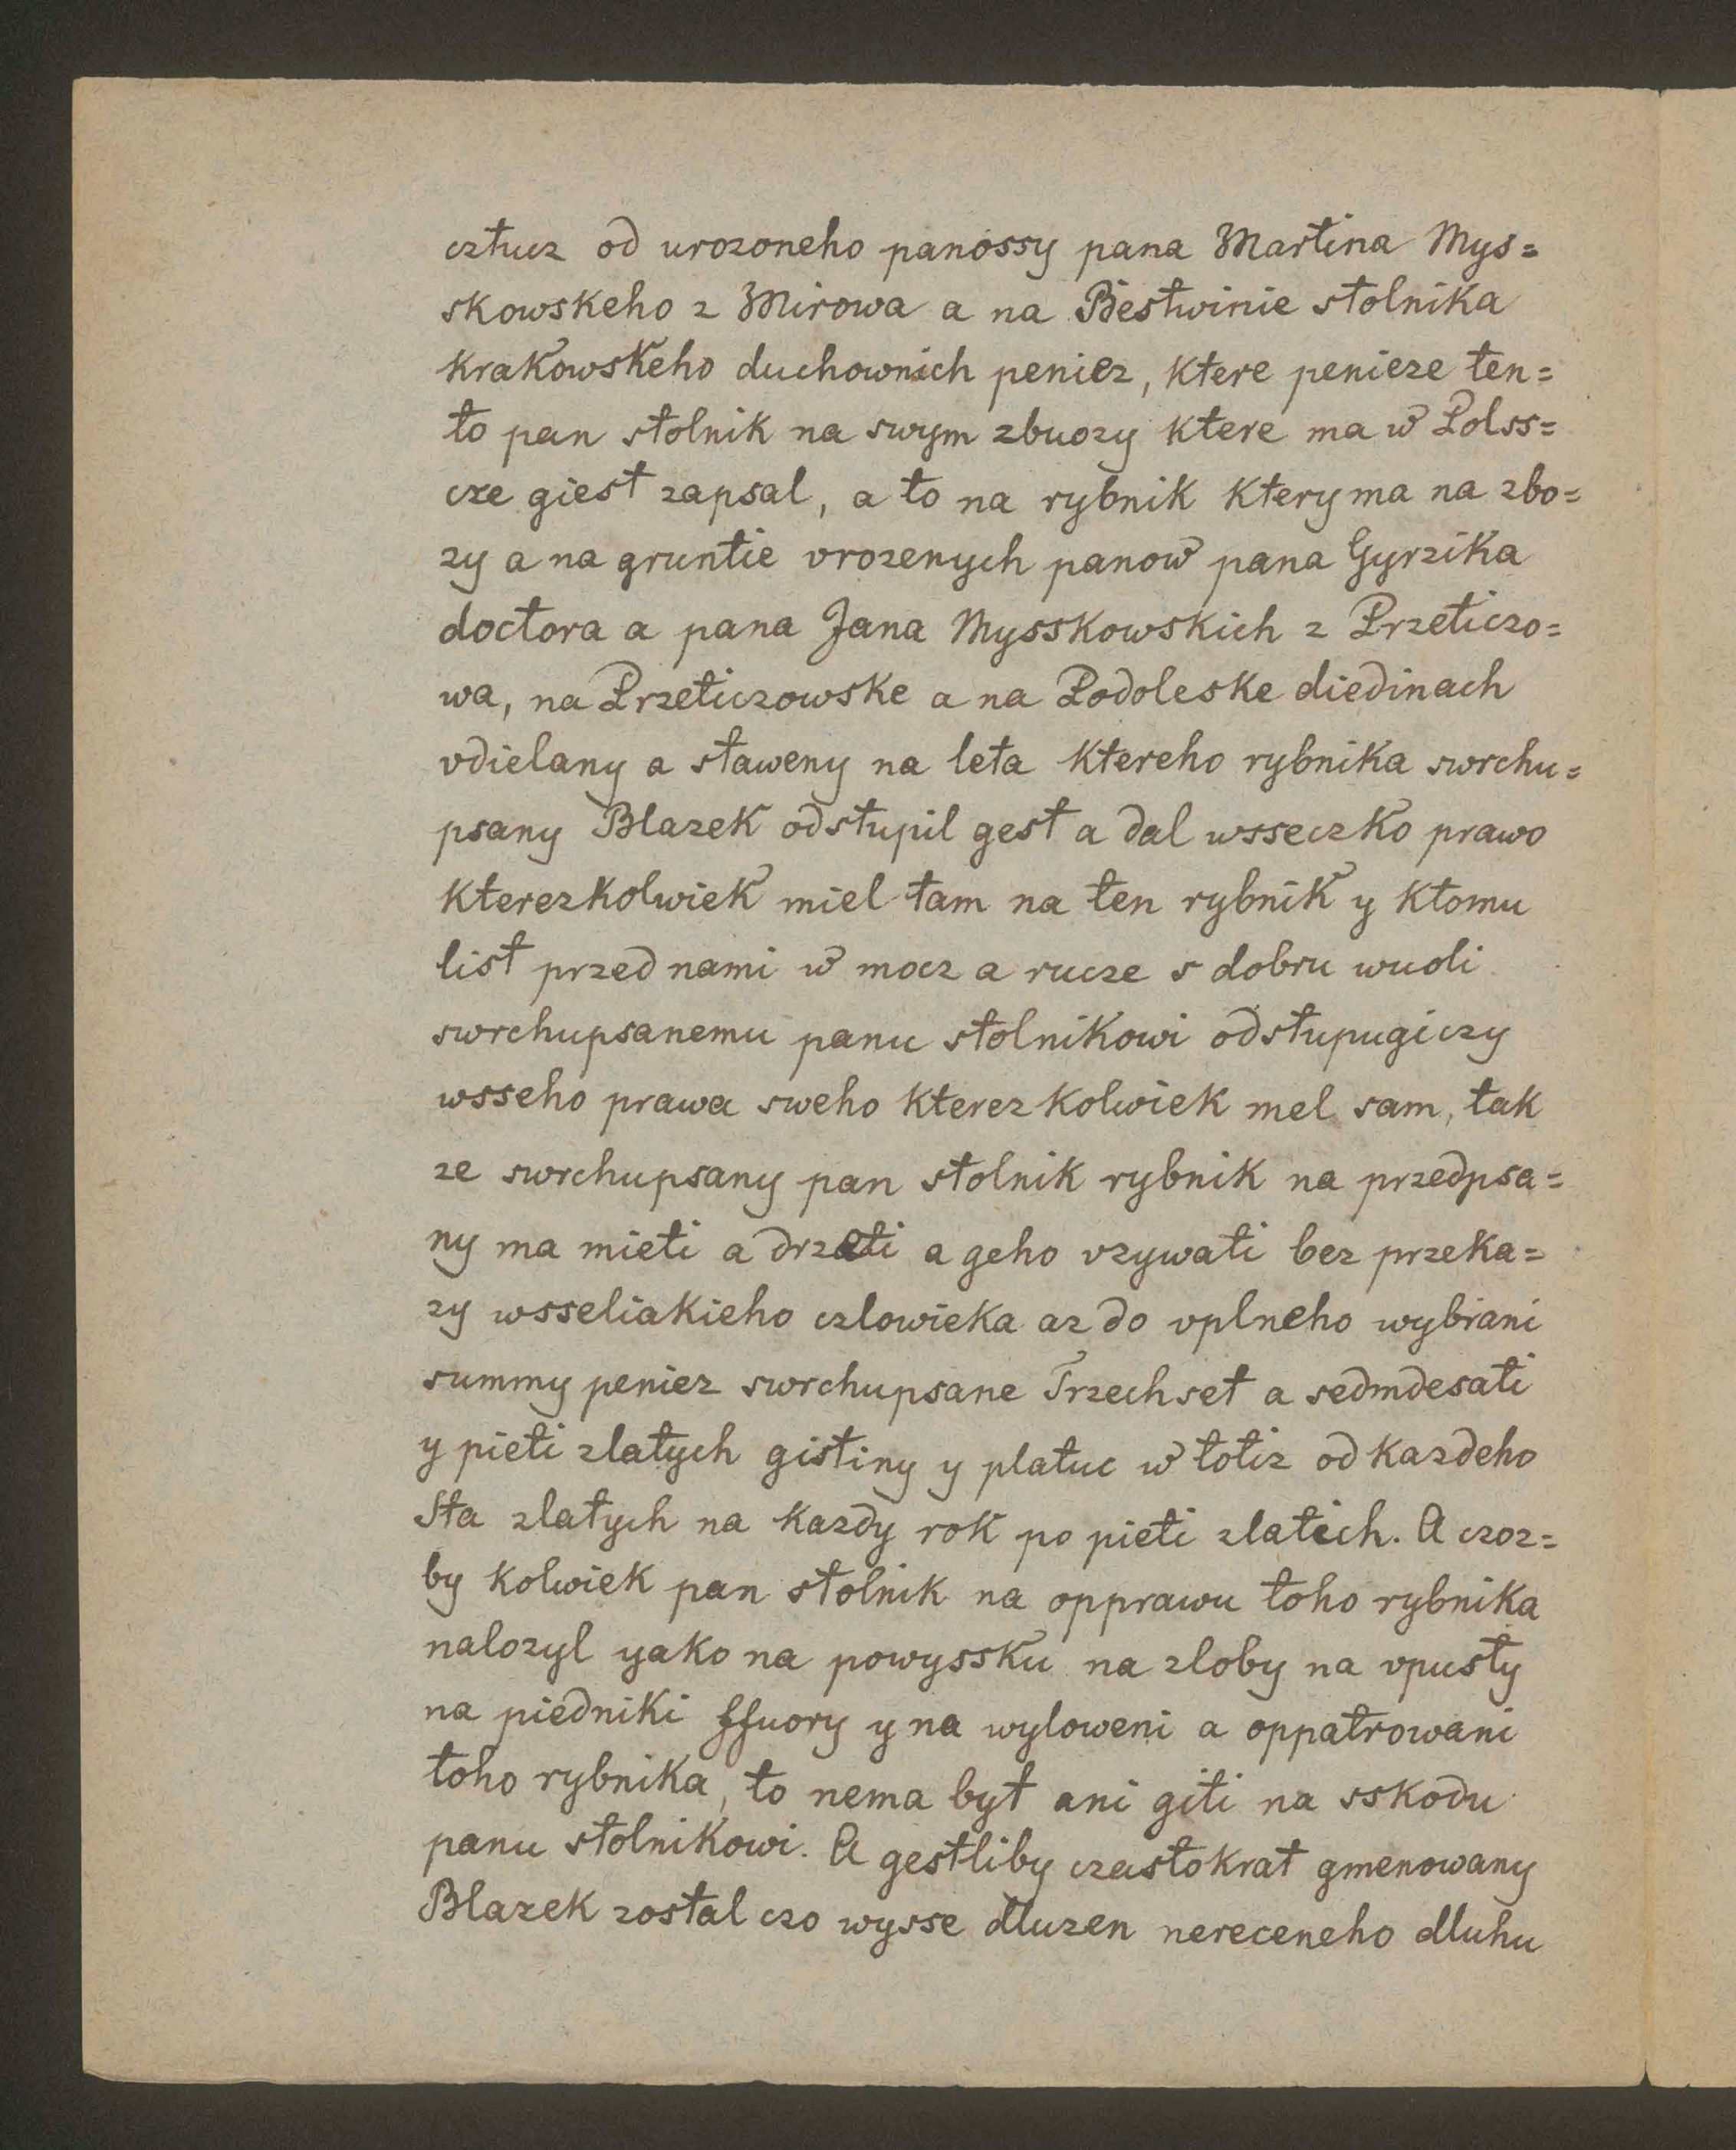 cztucz od urozoneho panossy pana Martina Mys=
skowskeho z Mirowa a na Biestwinie stolnika
krakowskeho duchownich peniez, ktere penieze ten=
to pan stolnik na swym zbuozy ktere ma w Polss=
cze giest zapsal, a to na rybnik kteryma na zbo=
zy a na gruntie vrozenych panow pana Gyrzika
doctora a pana Jana Mysskowskich z Przeticzo=
wa, na Przeticzowske a na Podoleske diedinach
vdielany a staweny na leta ktereho rybnika swrchu=
psany Blazek odstupil gest a dal wsseczko prawo
kterezkolwiek miel tam na ten rybnik y ktomu
list przed nami w mocz a rucze s dobru wuoli
swrchupsanemu panu stolnikowi odstupugiczy
wsseho prawa sweho kterezkolwiek mel sam, tak
ze swrchupsany pan stolnik rybnik na przedpsa=
ny ma mieti a drzeti a geho vzywati bez przeka=
zy wsseliakieho czlowieka az do vplneho wybrani
summy peniez swrchupsane Trzechset a sedmdesati
y pieti zlatych gistiny y platuc w totiz od kazdeho
Sta zlatych na kazdy rok po pieti zlatich. A czoz=
by kolwiek pan stolnik na opprawu toho rybnika
nalozyl yako na powyssku na zloby na vpusty
na piedniki ffuory y na wyloweni a oppatrowani
toho rybnika, to nema byt ani giti na sskodu
panu stolnikowi. A gestliby czastokrat gmenowany
Blazek zostal czo wysse dluzen nereceneho dluhu